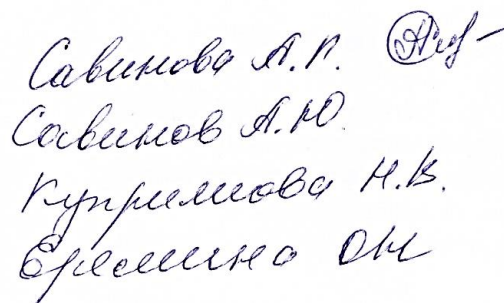 Савинова А.П.
Савинов А.Ю.
Куприянова Н.В.
Еремина ОН